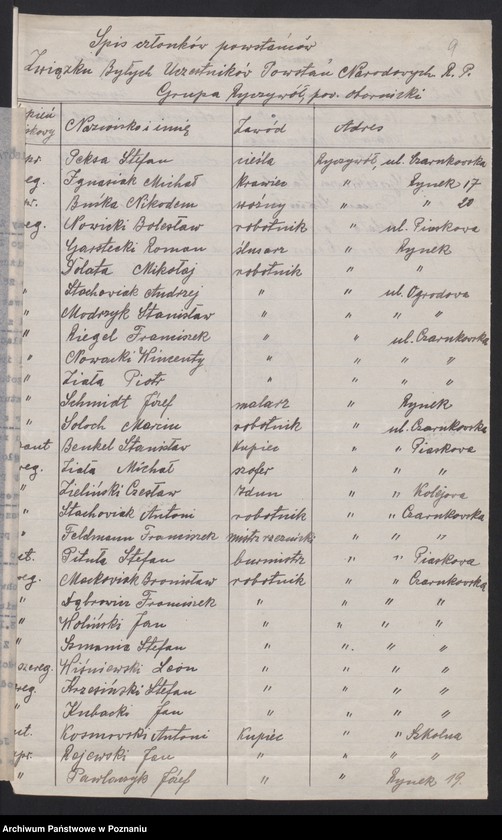 9
Spis członków powstańców
Związku Byłych Uczestników Powstań Narodowych R. P.
Grupa Ryczywół, pow. obornicki
pień Nazwisko i imię Zawód Adres
kowy
pr. Peksa Stefan cieśla Ryczywół, ul. Czarnkowska
eg. Ignasiak Michał krawiec " Rynek 17
Buśka Nikodem woźny " " 20
eg. Nowicki Bolesław robotnik " ul. Piaskova
Garstecki Roman ślusarz " Rynek
Połata Mikołaj robotnik " "
" Stachoviak Andrzej " " ul. Ogrodova
" Modrzyk Stanisław " " " "
" Riegel Franciszek " " ul. Czarnkowska
" Nowacki Wincenty " " " "
" Ziała Piotr " " " "
" Schmidt Józef malarz " Rynek
" Soloch Marcin robotnik " ul. Czarnkowska
ant Benkel Stanisław kupiec " " Piaskova
reg. Ziała Michał szofer " " "
" Zieliński Czesław zdun " " Kolejova
" Stachoviak Antoni robotnik " " Czarnkovska
" Feldmann Franciszek mistrz rzeźnicki " " "
et. Pituła Stefan burmistrz " " Piaskova
reg. Maćkoviak Bronisław robotnik " " Czarnkovska
" Dąbrowicz Franciszek " " " "
" Woliński Jan " " " "
" Szmania Stefan " " " "
szereg. Wiśniewski Leon " " " "
reg. Krzesiński Stefan " " " "
" Kubacki Jan " " " "
nt. Kosmovski Antoni Kupiec " " Szkolna
pr. Rajewski Jan " " " "
" Pawlaczyk Józef " " Rynek 19.
Archiwum Państwowe w Poznaniu